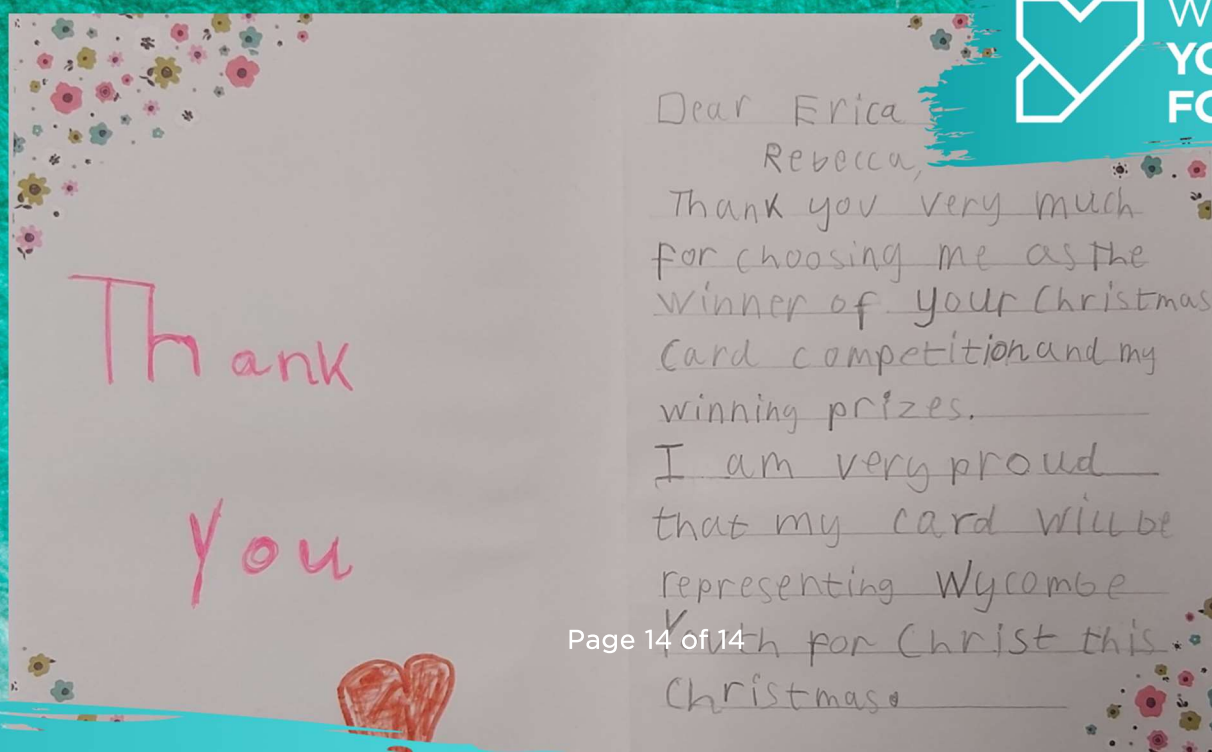 Thank
you
Dear Erica
Rebecca,
Thank you very much
for choosing me as the
winner of your Christmas
Card competition and my
winning prizes.
I am very proud
that my card will be
representing Wycombe
Youth for Christ this
Christmas.
Page 14 of 14